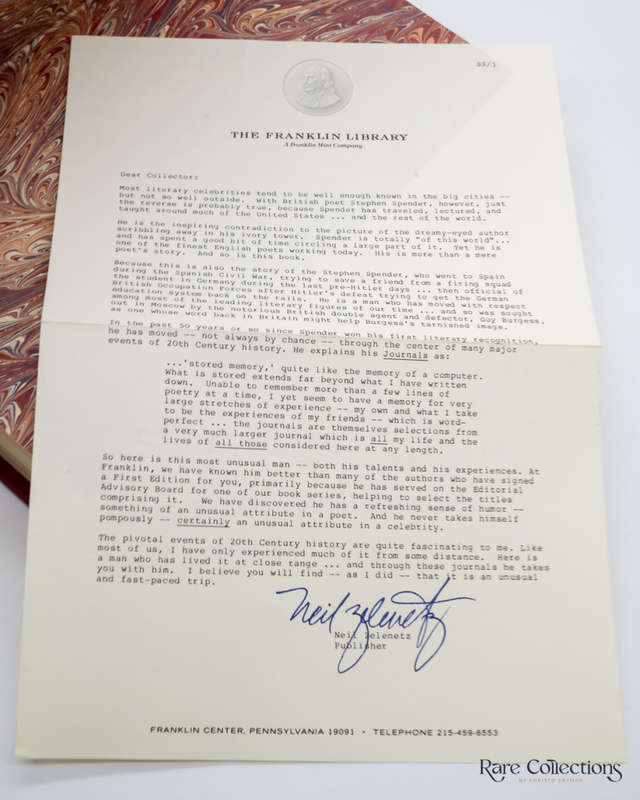 SS/1
THE FRANKLIN LIBRARY
A Franklin Mint Company
Dear Collector:
Most literary celebrities tend to be well enough known in the big cities --
but not so well outside. With British poet Stephen Spender, however, just
the reverse is probably true, because Spender has traveled, lectured, and
taught around much of the United States ... and the rest of the world.
He is the inspiring contradiction to the picture of the dreamy-eyed author
scribbling away in his ivory tower. Spender is totally "of this world"...
and has spent a good bit of time circling a large part of it. Yet he is
one of the finest English poets working today. His is more than a mere
poet's story. And so is this book.
Because this is also the story of the Stephen Spender, who went to Spain
during the Spanish Civil War, trying to save a friend from a firing squad
the student in Germany during the last pre-Hitler days ... then official of
British Occupation Forces after Hitler's defeat trying to get the German
education system back on the rails. He is a man who has moved with respect
among most of the leading literary figures of our time ... and so was sought
out in Moscow by the notorious British double agent and defector, Guy Burgess,
as one whose word back in Britain might help Burgess's tarnished image.
In the past 50 years or so since Spender won his first literary recognition,
he has moved -- not always by chance -- through the center of many major
events of 20th Century history. He explains his Journals as:
...'stored memory,' quite like the memory of a computer.
What is stored extends far beyond what I have written
down. Unable to remember more than a few lines of
poetry at a time, I yet seem to have a memory for very
large stretches of experience -- my own and what I take
to be the experiences of my friends -- which is word-
perfect ... the journals are themselves selections from
a very much larger journal which is all my life and the
lives of all those considered here at any length.
So here is this most unusual man -- both his talents and his experiences. At
Franklin, we have known him better than many of the authors who have signed
a First Edition for you, primarily because he has served on the Editorial
Advisory Board for one of our book series, helping to select the titles
comprising it. We have discovered he has a refreshing sense of humor --
something of an unusual attribute in a poet. And he never takes himself
pompously -- certainly an unusual attribute in a celebrity.
The pivotal events of 20th Century history are quite fascinating to me. Like
most of us, I have only experienced much of it from some distance. Here is
a man who has lived it at close range ... and through these journals he takes
you with him. I believe you will find -- as I did -- that it is an unusual
and fast-paced trip.
Neil Zelenetz
Neil Zelenetz
Publisher
FRANKLIN CENTER, PENNSYLVANIA 19091 • TELEPHONE 215-459-6553
Rare Collections